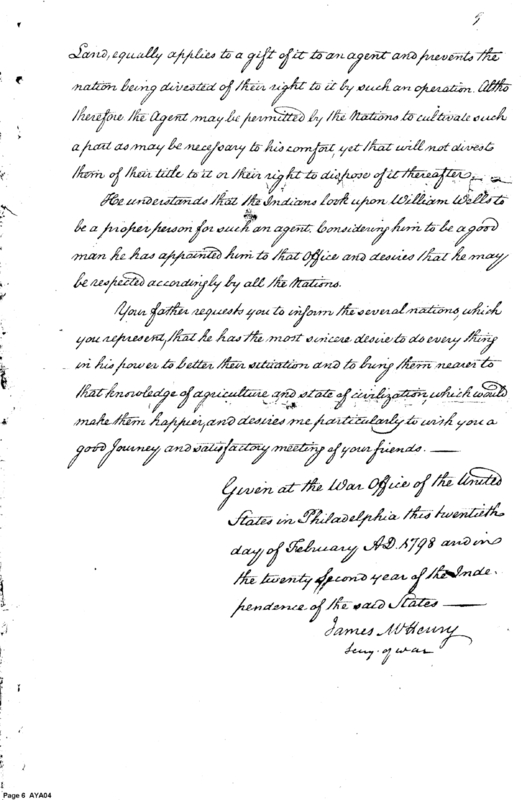 5
Land, equally applies to a gift of it to an agent and prevents the
nation being divested of their right to it by such an operation. Altho
therefore the Agent may be permitted by the Nations to cultivate such
a part as may be necessary to his comfort, yet that will not divest
them of their title to it or their right to dispose of it thereafter. —
He understands that the Indians look upon William Wells to
be a proper person for such an agent. Considering him to be a good
man he has appointed him to that Office and desires that he may
be respected accordingly by all the Nations.
Your father requests you to inform the several nations, which
you represent, that he has the most sincere desire to do every thing
in his power to better their situation and to bring them nearer to
that knowledge of agriculture and state of civilization, which would
make them happier, and desires me particularly to wish you a
good Journey and satisfactory meeting of your friends. —
Given at the War Office of the United
States in Philadelphia this twentieth
day of February A.D. 1798 and in
the twenty second year of the Inde-
pendence of the said States —
James McHenry
Secy. of war
Page 6 AYA04